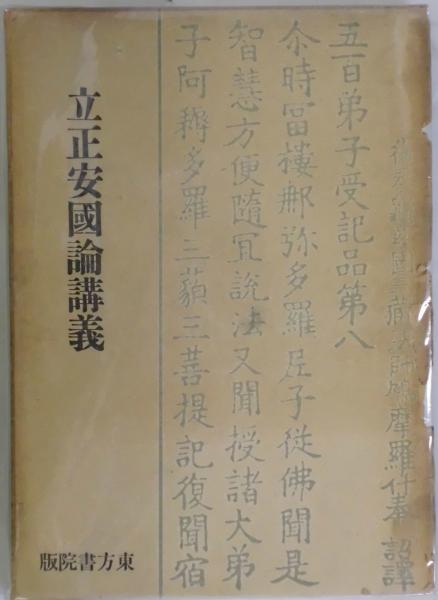 後秦龜茲國三藏法師鳩摩羅什奉 詔譯
五百弟子受記品第八
尒時富樓那弥多羅尼子從佛聞是
智慧方便隨冝說法又聞授諸大弟
子阿耨多羅三藐三菩提記復聞宿
立正安國論講義
東方書院版